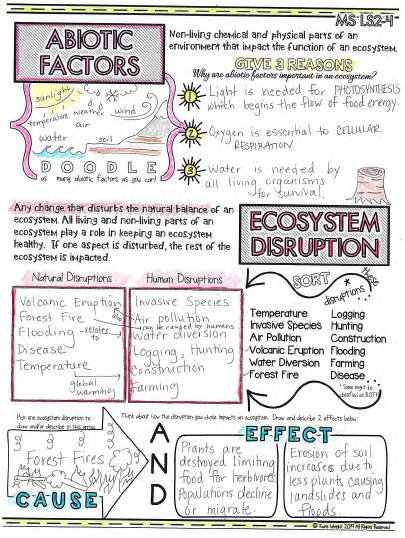 MS LS2-4
ABIOTIC
FACTORS
Non-living chemical and physical parts of an
environment that impact the function of an ecosystem.
GIVE 3 REASONS
Why are abiotic factors important in an ecosystem?
1 Light is needed for PHOTOSYNTHESIS
which begins the flow of food energy.
2 Oxygen is essential to CELLULAR
RESPIRATION
3 Water is needed by
all living organisms
for survival.
sunlight
temperature weather wind
air
water
soil
DOODLE
as many abiotic factors as you can!
Any change that disturbs the natural balance of an
ecosystem. All living and non-living parts of an
ecosystem play a role in keeping an ecosystem
healthy. If one aspect is disturbed, the rest of the
ecosystem is impacted.
ECOSYSTEM
DISRUPTION
Natural Disruptions
Volcanic Eruption
Forest Fire
Flooding
Disease
Temperature
relates
to
global
warming
Human Disruptions
Invasive Species
Air pollution
also
can be caused by humans
Water diversion
Logging, Hunting
Construction
Farming
SORT
these
disruptions
*
Temperature Logging
Invasive Species Hunting
Air Pollution Construction
Volcanic Eruption Flooding
Water Diversion Farming
Forest Fire Disease
* Some might be
classified as BOTH!
Pick one ecosystem disruption to
draw and/or describe in this arrow.
Forest Fires
CAUSE
AND
Think about how the disruption you chose impacts an ecosystem. Draw and describe 2 effects below.
EFFECT
Plants are
destroyed limiting
food for herbivores.
Populations decline
or migrate.
Erosion of soil
increases due to
less plants causing
landslides and
floods.
© Kate Wright 2019 All Rights Reserved